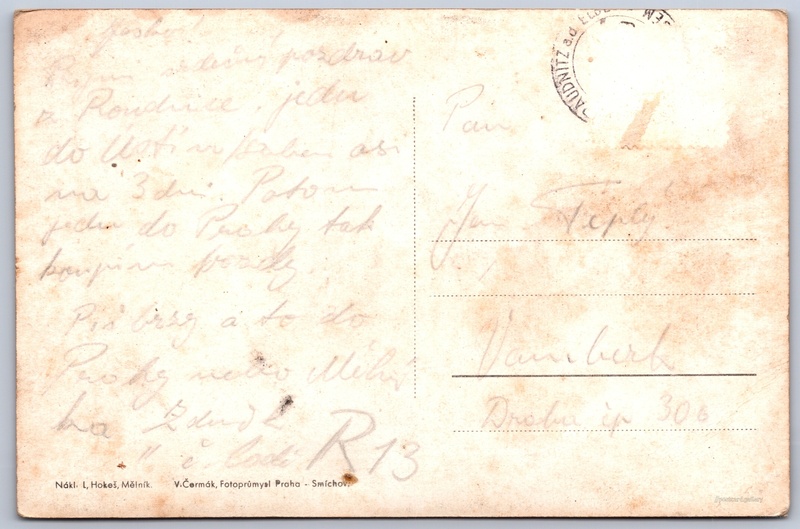 srdečný pozdrav
z Roudnice, jedu
do Ústí n/Labem asi
na 3 dni. Potom
jedu do Prahy tak
Piš brzy a to do
Prahy nebo
Zdeněk
č. lodi R13
RAUDNITZ a.d. ELBE
Pan
Jan Teplý
Vamberk
čp 306
Nákl. L. Hokeš, Mělník. V. Čermák, Fotoprůmysl Praha - Smíchov.